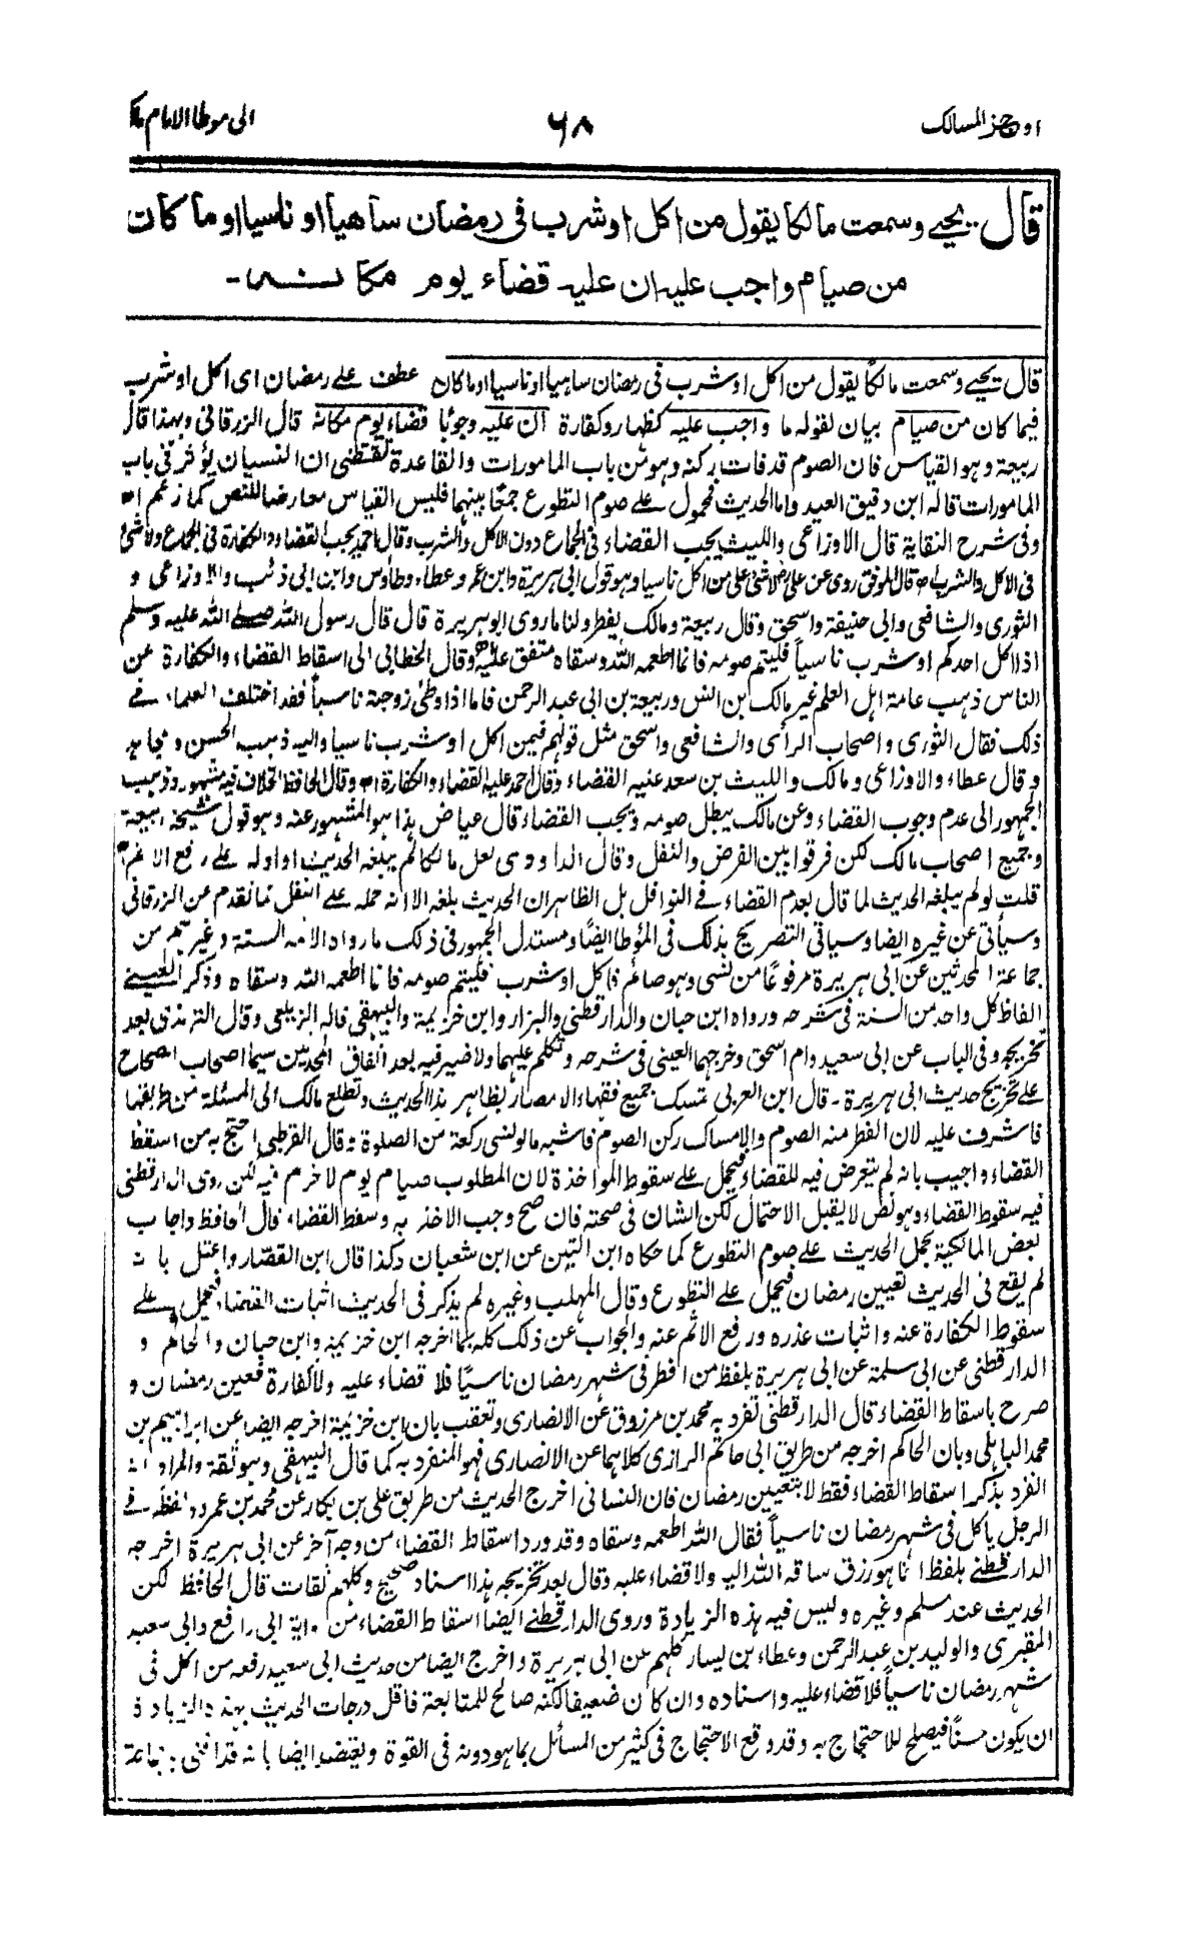 اوجز المسالك ٦٨ الى موطا الامام مالك
قال يحيى وسمعت مالكا يقول من اكل او شرب فى رمضان ساهيا او ناسيا او ما كان
من صيام واجب عليه ان عليه قضاء يوم مكانه -
قال يحيى وسمعت مالكا يقول من اكل او شرب فى رمضان ساهيا او ناسيا او ما كان عطف على رمضان اى اكل او شرب
فيما كان من صيام بيان لقوله ما واجب عليه كظهار وكفارة ان عليه وجوبا قضاء يوم مكانه قال الزرقانى وبهذا قال
ربيعة وهو القياس فان الصوم قد فات بركنه وهو من باب المامورات والقاعدة تقتضى ان النسيان يؤثر فى باب
المامورات قاله ابن دقيق العيد واما الحديث فمحمول على صوم التطوع جمعا بينهما فليس القياس معارضا للنص كما زعم اه
وفى شرح النقاية قال الاوزاعى والليث يجب القضاء فى الجماع دون الاكل والشرب وقال احمد يجب القضاء والكفارة فى الجماع ولا شئ
فى الاكل والشرب اه قال الموفق روى عن على رض لا شئ على من اكل ناسيا وهو قول ابى هريرة وابن عمر وعطاء وطاوس وابن ابى ذئب والاوزاعى و
الثورى والشافعى وابى حنيفة واسحق وقال ربيعة ومالك يفطر ولنا ما روى ابو هريرة قال قال رسول الله صلى الله عليه وسلم
اذا اكل احدكم او شرب ناسيا فليتم صومه فانما اطعمه الله وسقاه متفق عليه اه وقال الخطابى الى اسقاط القضاء والكفارة عن
الناس ذهب عامة اهل العلم غير مالك بن انس وربيعة بن ابى عبد الرحمن فاما اذا وطئ زوجته ناسيا فقد اختلف العلماء فى
ذلك فقال الثورى واصحاب الرأى والشافعى واسحق مثل قولهم فيمن اكل او شرب ناسيا واليه ذهب الحسن ومجاهد
وقال عطاء والاوزاعى ومالك والليث بن سعد عليه القضاء وقال احمد عليه القضاء والكفارة اه وقال الحافظ الخلاف فيه مشهور وذهب
الجمهور الى عدم وجوب القضاء وعن مالك يبطل صومه ويجب القضاء قال عياض هذا هو المشهور عنه وهو قول شيخه ربيعة
وجميع اصحاب مالك لكن فرقوا بين الفرض والنفل وقال الداودى لعل مالكا لم يبلغه الحديث او اوله على رفع الاثم اه
قلت لو لم يبلغه الحديث لما قال بعدم القضاء فى النوافل بل الظاهر ان الحديث بلغه الا انه حمله على النفل كما تقدم عن الزرقانى
وسيأتى عن غيره ايضا وسياتى التصريح بذلك فى المؤطا ايضا ومستدل الجمهور فى ذلك ما رواه الائمة الستة وغيرهم من
جماعة المحدثين عن ابى هريرة مرفوعا من نسى وهو صائم فاكل او شرب فليتم صومه فانما اطعمه الله وسقاه وذكر العينى
الفاظ كل واحد من الستة فى شرحه ورواه ابن حبان والدارقطنى والبزار وابن خزيمة والبيهقى قاله الزيلعى وقال الترمذى بعد
تخريجه وفى الباب عن ابى سعيد وام اسحق وخرجهما العينى فى شرحه وتكلم عليهما ولا ضير فيه بعد اتفاق المحدثين سيما اصحاب الصحاح
على تخريج حديث ابى هريرة - قال ابن العربى تمسك جميع فقهاء الامصار بظاهر هذا الحديث وتطلع مالك الى المسئلة من طريقها
فاشرف عليه لان الفطر منه الصوم والامساك ركن الصوم فاشبه ما لو نسى ركعة من الصلوة : قال القرطبى احتج به من اسقط
القضاء واجيب بانه لم يتعرض فيه للقضاء فيحمل على سقوط المواخذة لان المطلوب صيام يوم لا خرم فيه لكن روى الدارقطنى
فيه سقوط القضاء وهو نص لا يقبل الاحتمال لكن الشان فى صحته فان صح وجب الاخذ به وسقط القضاء، قال الحافظ واجاب
بعض المالكية بحمل الحديث على صوم التطوع كما حكاه ابن التين عن ابن شعبان وكذا قال ابن القصار واعتل بانه
لم يقع فى الحديث تعيين رمضان فيحمل على التطوع وقال المهلب وغيره لم يذكر فى الحديث اثبات القضاء فيحمل على
سقوط الكفارة عنه واثبات عذره ورفع الاثم عنه والجواب عن ذلك كله بما اخرجه ابن خزيمة وابن حبان والحاكم و
الدارقطنى عن ابى سلمة عن ابى هريرة بلفظ من افطر فى شهر رمضان ناسيا فلا قضاء عليه ولا كفارة فعين رمضان و
صرح باسقاط القضاء قال الدارقطنى تفرد به محمد بن مرزوق عن الانصارى وتعقب بان ابن خزيمة اخرجه ايضا عن ابراهيم بن
محمد الباهلى وبان الحاكم اخرجه من طريق ابى حاتم الرازى كلاهما عن الانصارى فهو المنفرد به كما قال البيهقى وهو ثقة والمراد انه
انفرد بذكر اسقاط القضاء فقط لا بتعيين رمضان فان النسائى اخرج الحديث من طريق على بن بكار عن محمد بن عمرو ولفظه فى
الرجل ياكل فى شهر رمضان ناسيا فقال الله اطعمه وسقاه وقد ورد اسقاط القضاء من وجه آخر عن ابى هريرة اخرجه
الدارقطنى بلفظ انما هو رزق ساقه الله اليه ولا قضاء عليه وقال بعد تخريجه هذا اسناد صحيح وكلهم ثقات قال الحافظ لكن
الحديث عند مسلم وغيره وليس فيه هذه الزيادة وروى الدارقطنى ايضا اسقاط القضاء من رواية ابى رافع وابى سعيد
المقبرى والوليد بن عبد الرحمن وعطاء بن يسار كلهم عن ابى هريرة واخرج ايضا من حديث ابى سعيد رفعه من اكل فى
شهر رمضان ناسيا فلا قضاء عليه واسناده وان كان ضعيفا لكنه صالح للمتابعة فاقل درجات الحديث بهذه الزيادة
ان يكون حسنا فيصلح للاحتجاج به وقد وقع الاحتجاج فى كثير من المسائل بما هو دونه فى القوة ويعتضد ايضا بانه قد افتى به جماعة